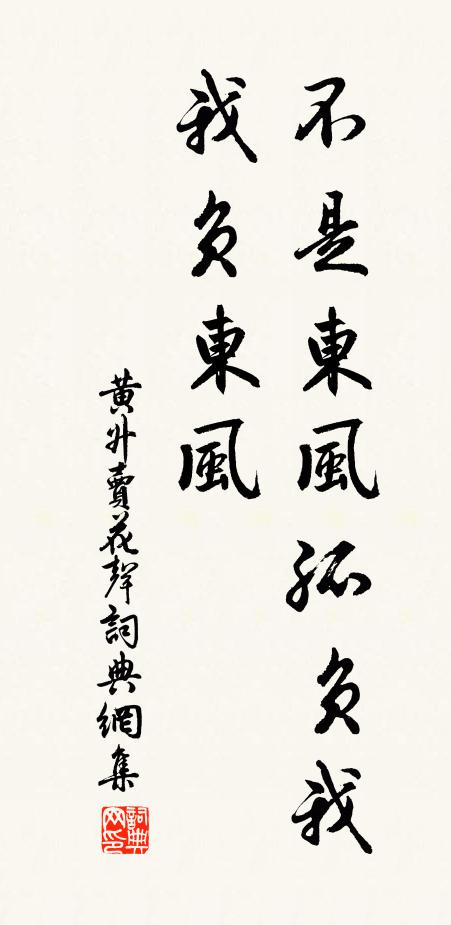 不是東風孤負我
我負東風
黄升賣花聲詞典網集
詞典网印